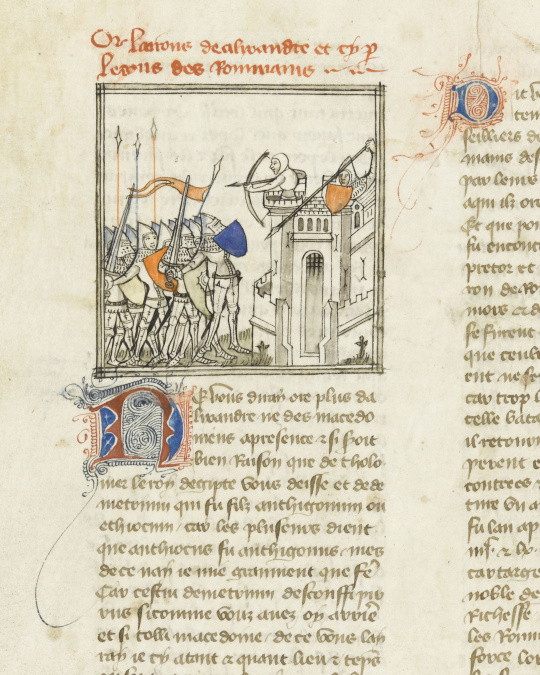 Or lairons dealixandre et ey p
lerons des Rommains
Ne vous diray ore plus da
lixandre ne des macedo
niens apresence & si soit
bien Raison que de tholo
mer le roy degipte vous deisse et de de
metrium qui fu filz anthigonum ou
car les pluseurs dient
que anthiocus fu anthigonus mes
de ce nay ie mie granment que fe
Car cestui demetrium desconfi pir
rus si comme vous avez oy arrie
et si tolli macedome de ce vous lay
ray ie cy atant & quant lieu & teps
seilliers de
mains des
par leurs
aqui ilz ore
Et que pou
fu encont
pretor et
ron de Ro
mors & d
se furent
que ceulx
ent ne se
car trop l
celle bata
il retourn
perent e
contrees &
fu lan ap
car targe
noble de
Richesse
les Romm
force lor